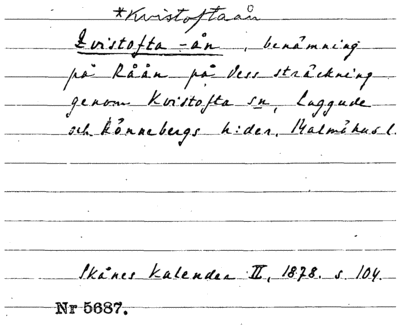 *Kvistoftaån
Qvistofta-ån, benämning
på Råån på dess sträckning
genom Kvistofta sn, Luggude
och Rönnebergs h:der, Malmöhus l.
Skånes Kalender II, 1878. s. 104.
Nr 5687.